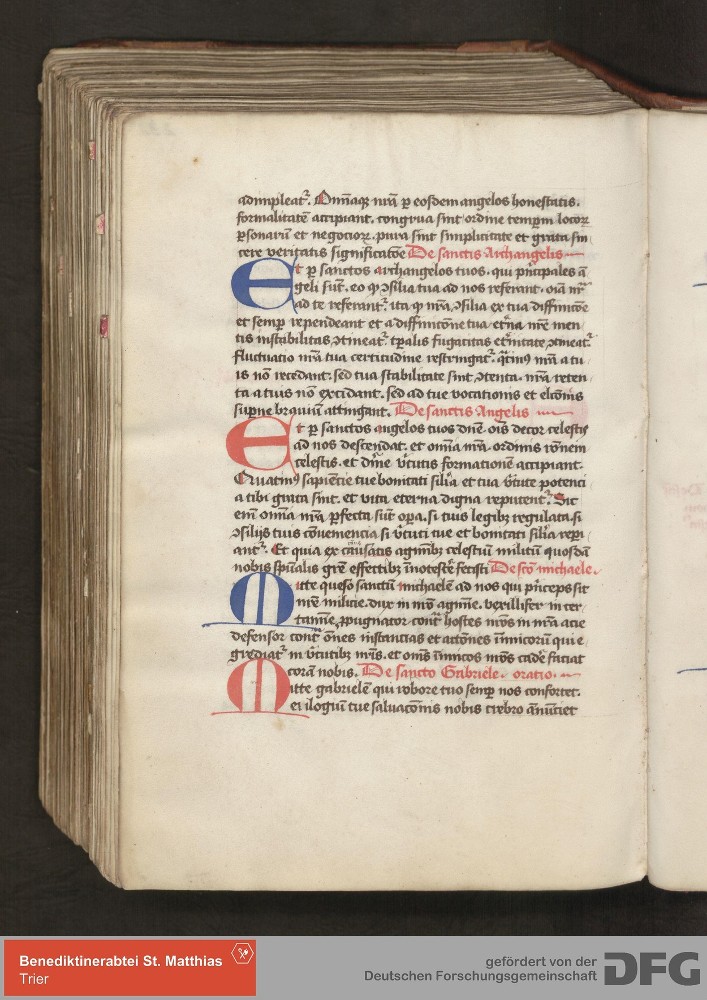 adimpleat᷑. Om̄iaq₃ nr̄a ꝑ eosdem angelos honestatis.
formalitatē accipiant. congrua sint ordine temp̄m locoꝝ
ꝑsonarū et negocioꝝ. pura sint simplicitate et grata sin
cere veritatis significatōe De sanctis Archangelis
Et ꝑ sanctos archangelos tuos. qui prīcipales ā
geli sūt. eo ꝙ ꝯsilia tua ad nos referant. oīa
ad te referant᷑. ita ꝙ nr̄a ꝯsilia ex tua diffinitōe
et semꝑ rependeant et a diffinitōne tua et̄na nr̄e men
tis instabilitas ꝯtineat᷑. tꝑalis fugacitas et̄nitate ꝯtineat᷑.
fluctuatio nr̄a tua certitudine restringat᷑. nr̄a a tu
is nō recedant. sed tua stabilitate sint ꝯtenta. nr̄a reten
ta a tuis nō excidant. sed ad tue vocationis et elc̄onis
suꝑne brauiū attingant. De sanctis Angelis
Et ꝑ sanctos angelos tuos dn̄e. oīs decor celestis
ad nos descendat. et om̄ia nr̄a. ordinis rōnem
celestis. et diuīe v̄tutis formationē accipiant.
Quatin᷒ sapiēcie tue bonitati sil̄ia et tua v̄tute potenci
a tibi grata sint. et vita eterna digna reputent᷑. Sic
em̄ om̄ia nr̄a ꝑfecta sūt oꝑa. si tuis legib₃ regulata. si
ꝯsilijs tuis cōueniencia si v̄tuti tue et bonitati sil̄ia reꝑi
ant᷑. Et quia ex causatis agminib₃ celestiū militū quosdā
nobis sp̄ūalis gr̄e effectib₃ īnotesc̄e fecisti De sc̄o michaele.
Mitte queso sanctū michaelē ad nos qui prīceps sit
nr̄e milicie. dux in nr̄o agmīe. vexillifer in cer
tamīe. ꝓpugnator cont̄ hostes nr̄os in nr̄a acie
defensor cont̄ om̄es instancias et actōnes inimicorū qui e
grediat᷑ in v̄tutib₃ nr̄is. et om̄s īnicos nr̄os cade᷑ faciat
corā nobis. De sancto Gabriele. oratio.
Mitte gabrielē qui robore tuo semꝑ nos confortet.
et ilogiū tue saluacōnis nobis crebro anūciet
Benediktinerabtei St. Matthias
Trier
gefördert von der
Deutschen Forschungsgemeinschaft DFG